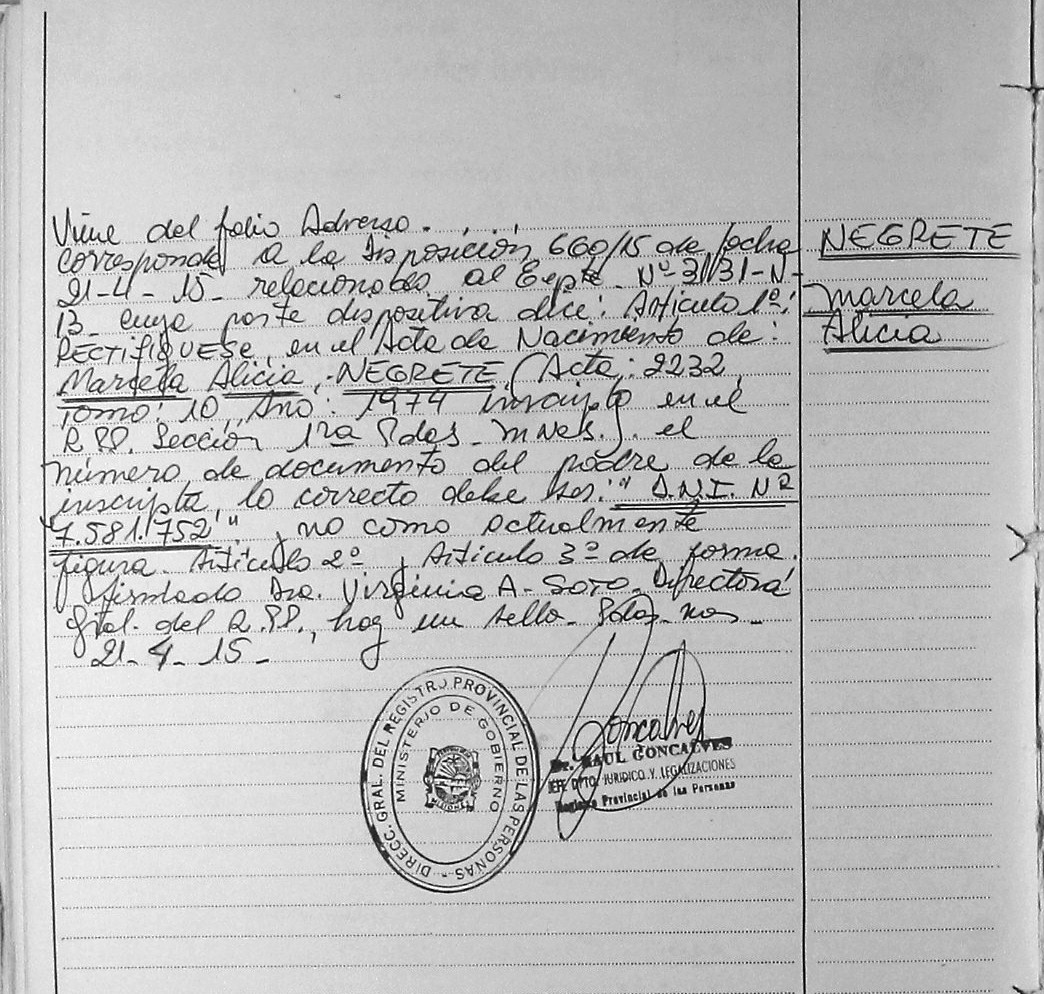 Viene del folio Adverso . . . .
corresponde a la Disposición 660/15 de fecha
21-4-15- relacionables al Expte. Nº 3131-N-
13- cuya parte dispositiva dice: Articulo 1º:
RECTIFIQUESE, en el Acta de Nacimiento de:
Marcela Alicia, NEGRETE (Acta: 2232,
Tomo: 10, Año: 1974 inscripto en el
R.PP. Sección 1ra Pdas - Mnes.). el
número de documento del padre de la
inscripta, lo correcto debe ser: " D.N.I. Nº
7.581.752 ", no como actualmente
figura. Articulo 2º y Articulo 3º de forma.
firmado Dra. Virginia A. SOTO. Directora
Gral. del R.PP., hay un sello- Pdas- mns-
21-4-15-
NEGRETE
Marcela
Alicia
DIRECC. GRAL. DEL REGISTRO PROVINCIAL DE LAS PERSONAS -
MINISTERIO DE GOBIERNO
MISIONES
Goncalves
Dr. RAUL GONCALVES
JEFE DPTO. JURIDICO Y LEGALIZACIONES
Registro Provincial de las Personas